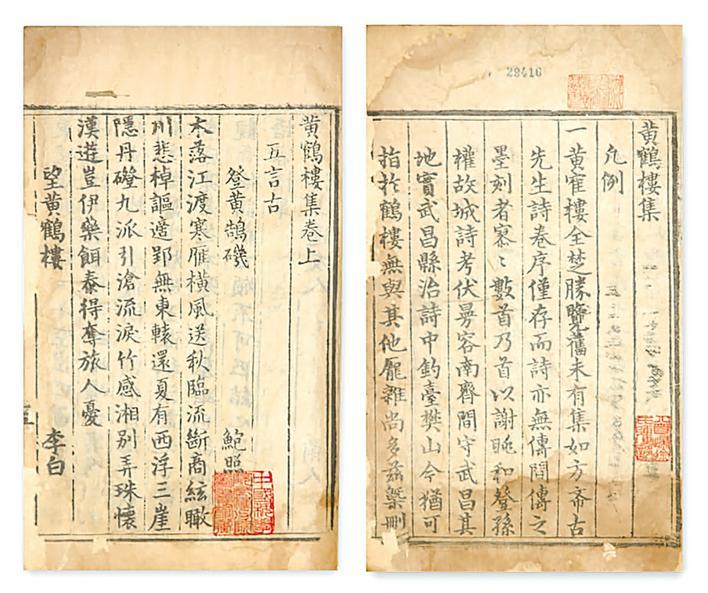 黄鶴樓集
凡例
一黄寉樓全楚勝覽舊未有集如方斋古
先生詩卷序僅存而詩亦無傳間傳之
墨刻者寥〻數首乃首以謝眺和登孫
權故城詩考伏曼容南齊間守武昌其
地實武昌縣治詩中釣臺樊山今猶可
指扵鶴樓無與其他厖雜尚多茲槩刪
29416
黄鶴樓集卷上
五言古
登黄鵠磯
鮑照
木落江渡寒雁橫風送秋臨流斷商絃瞰
川悲棹謳適郢無東轅還夏有西浮三崖
隱丹磴九派引滄流淚竹感湘别弄珠懷
漢遊豈伊藥餌泰得奪旅人憂
望黄鶴樓
李白